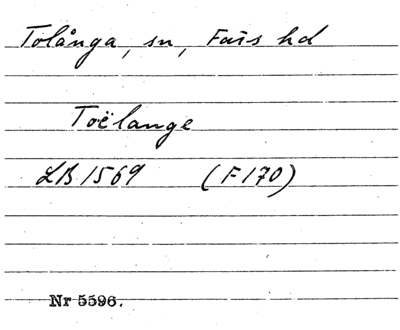 Tolånga, sn, Färs hd
Toëlange
LB 1569 (F 170)
Nr 5596.